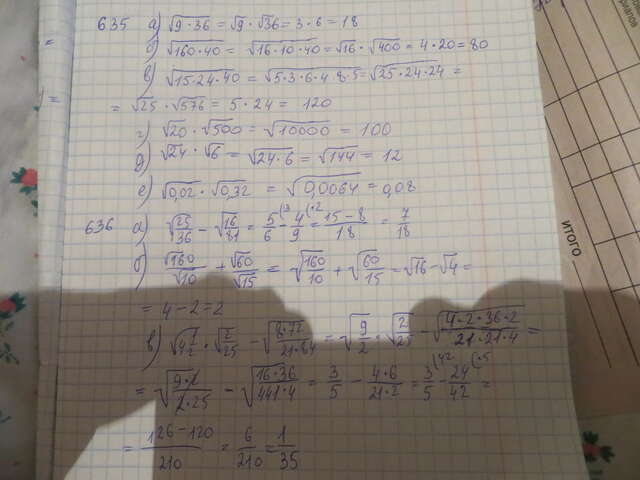 635 а) √9·36 = √9 · √36 = 3·6 = 18
б) √160·40 = √16·10·40 = √16 · √400 = 4·20 = 80
в) √15·24·40 = √5·3·6·4·8·5 = √25·24·24 =
= √25 · √576 = 5·24 = 120
г) √20 · √500 = √10000 = 100
д) √24 · √6 = √24·6 = √144 = 12
е) √0,02 · √0,32 = √0,0064 = 0,08
636 а) √25/36 − √16/81 = 5/6 (·3 − 4/9 (·2 = 15−8/18 = 7/18
б) √160/√10 + √60/√15 = √160/10 + √60/15 = √16 − √4 =
= 4 − 2 = 2
в) √4 1/2 · √2/25 − √8·72/21·84 = √9/2 · √2/25 − √4·2·36·2/21·21·4 =
= √9·2/2·25 − √16·36/441·4 = 3/5 − 4·6/21·2 = 3/5 (42 − 24/42 (·5 =
= 126−120/210 = 6/210 = 1/35
итого